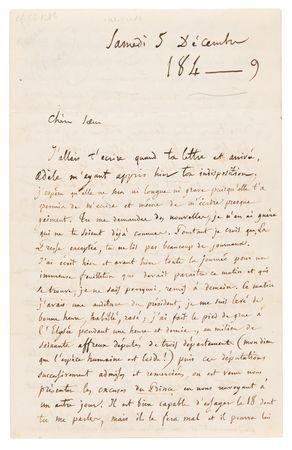 Samedi 5 Décembre
184 — 9
Chère sœur
J'allais t'écrire quand ta lettre est arrivée,
Adèle m'ayant appris hier ton indisposition,
j'espère qu'elle ne sera ni longue ni grave puisqu'elle t'a
permis de m'écrire et même de m'écrire presque
gaiment. Tu me demandes des nouvelles, je n'en ai guère
qui ne te soient déjà connues. Pourtant je crois que, la
Presse exceptée, tu ne lis pas beaucoup de journaux.
J'ai écrit hier et avant hier toute la journée pour un
immense feuilleton qui devait paraître ce matin et qui
se trouve, je ne sais pourquoi, remis à demain. Le matin
j'avais une audience du président, je me suis levé de
bonne heure, habillé, rasé, j'ai fait le pied de grue à
l'Elysée pendant une heure et demie, au milieu de
soixante affreux députés de trois départements (mon dieu
que l'espèce humaine est laide!) puis ces députations
successivement admises et renvoyées, on est venu nous
présenter les excuses du Prince en nous renvoyant à
un autre jour. Il est bien capable d'essayer le 18 dont
tu me parles, mais il le fera mal et il pourra lui